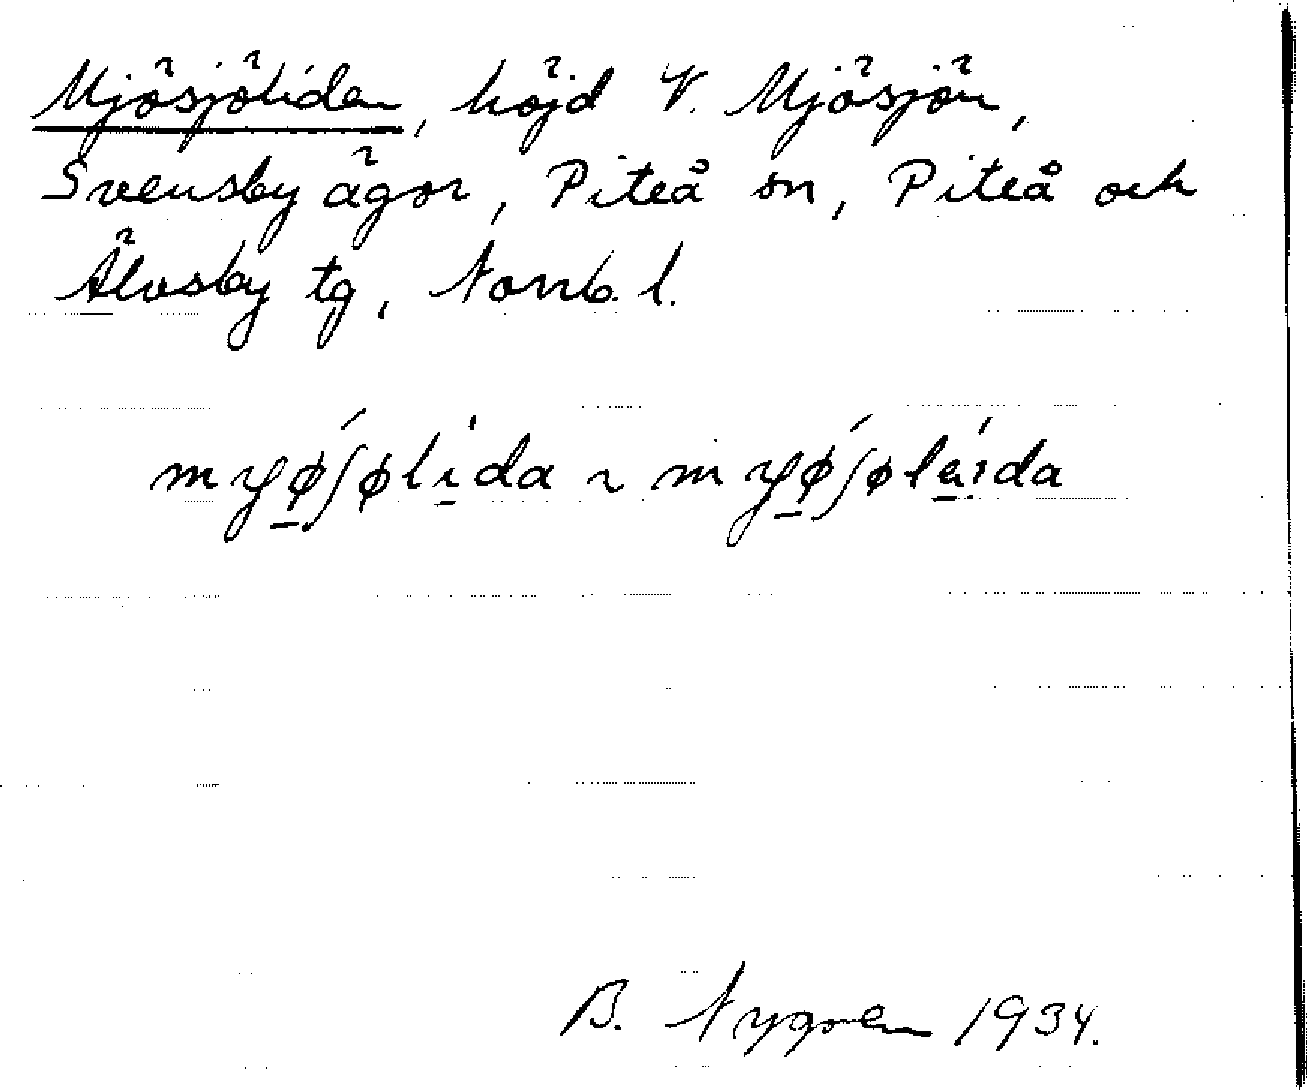 Mjösjöliden, höjd V. Mjösjön,
Svensby ägor, Piteå sn, Piteå och
Älvsby tg, Norrb. l.
myǿ̲ʃøli̲̍da ~ myǿ̲ʃøla̲ída
B. Nygren 1934.